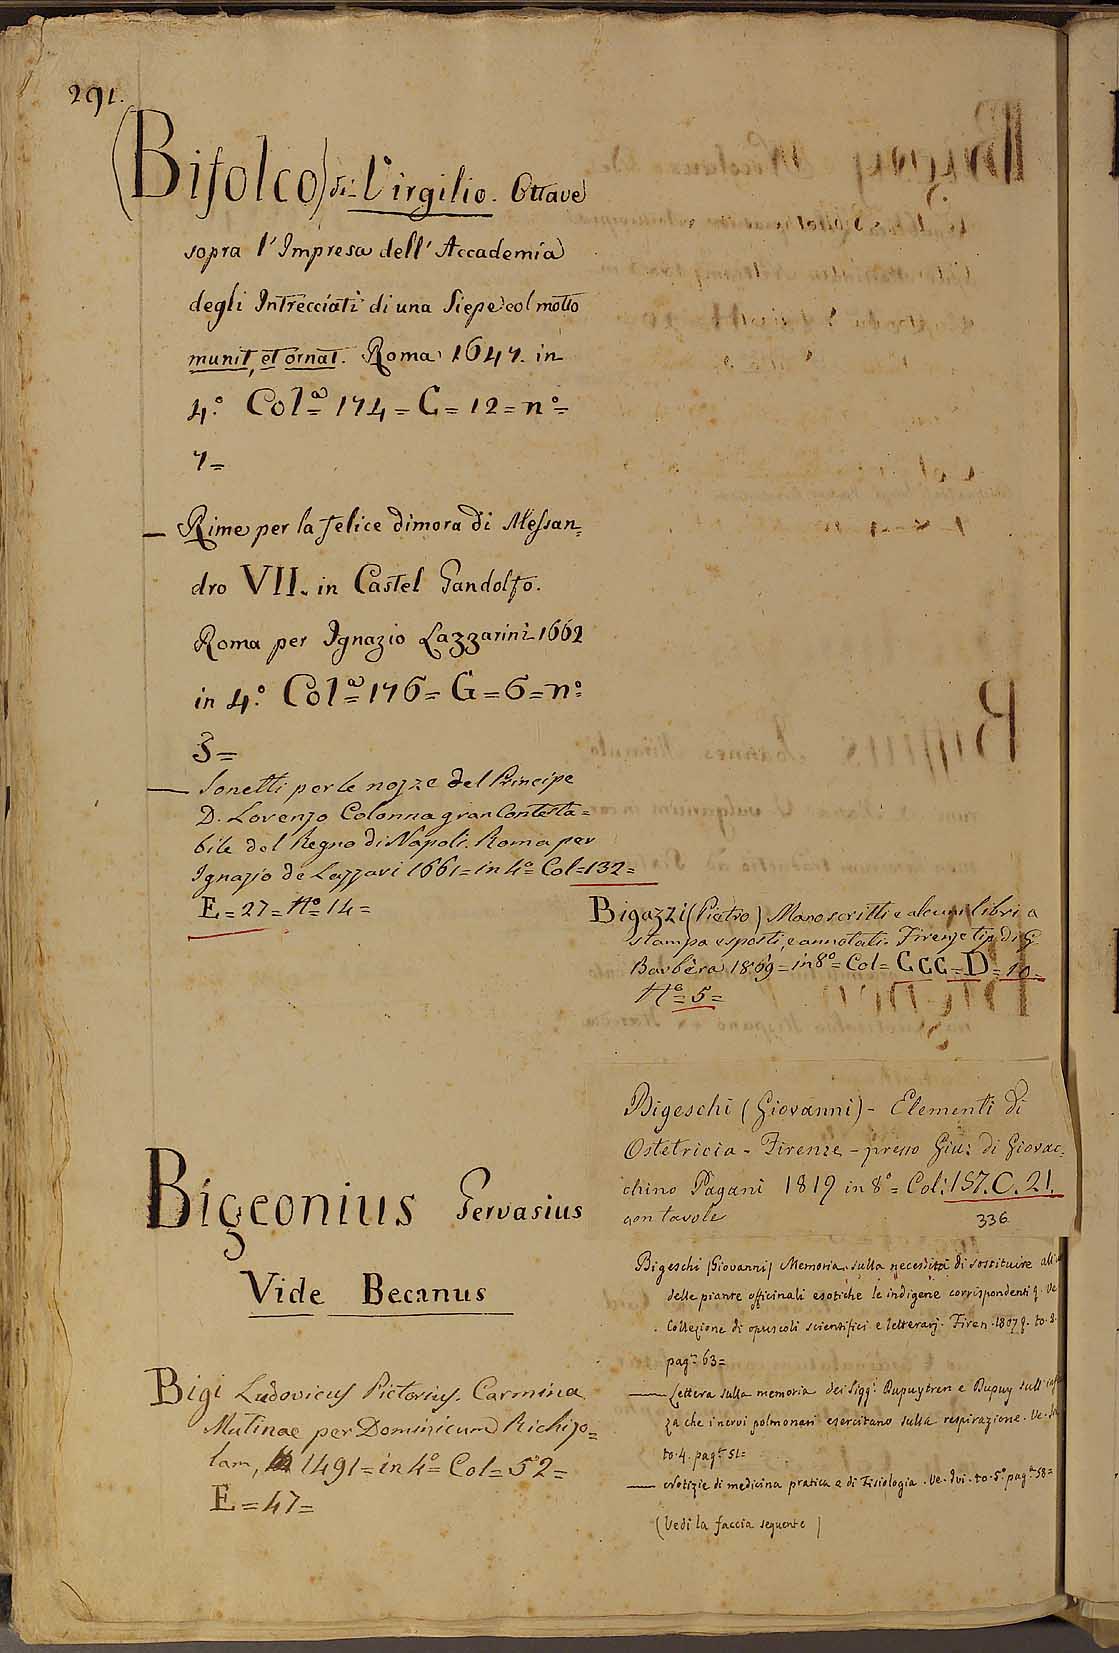 291.
(Bifolco) di Virgilio. Ottave
sopra l'Impresa dell'Accademia
degli Intrecciati di una Siepe col motto
munit, et ornat. Roma 1647. in
4.º Colª = 174 = G = 12 = nº =
7 =
— Rime per la felice dimora di Alessan=
dro VII. in Castel Gandolfo.
Roma per Ignazio Lazzarini 1662
in 4.º Colª = 176 = G = 6 = nº =
3 =
— Sonetti per le nozze del Principe
D. Lorenzo Colonna gran Contesta=
bile del Regno di Napoli. Roma per
Ignazio de Lazzari 1661 = in 4º = Col = 132 =
E = 27 = Nº = 14 =
Bigeonius Gervasius
Vide Becanus
Bigi Ludovicus Pictorius. Carmina
Mutinae per Dominicum Richizo=
lam, 1491 = in 4º = Col = 52 =
E = 47 =
Bigazzi (Pietro) Manoscritti e alcuni libri a
stampa esposti, e annotati. Firenze tip. di G.
Barbèra 1869 = in 8º = Col = CCC = D = 10 =
Nº = 5 =
Bigeschi (Giovanni) - Elementi di
Ostetricia - Firenze - presso Giu: di Giovac-
chino Pagani 1819 in 8º = Col: 157. C. 21.
con tavole
336
Bigeschi (Giovanni) Memoria sulla necessità di sostituire all'
delle piante officinali esotiche le indigene corrispondenti q. Ve
Collezione di opuscoli scientifici e letterarj. Firen. 1807 q. to. 2.
pagª 63 =
— Lettera sulla memoria dei Sigg.i Dupuytren e Dupuy sull'
za che i nervi polmonari esercitano sulla respirazione. Ve.
to. 4. pagª 51 =
— Notizie di medicina pratica e di Fisiologia. Ve. Ivi. to. 5º pagª 58 =
(Vedi la faccia seguente)